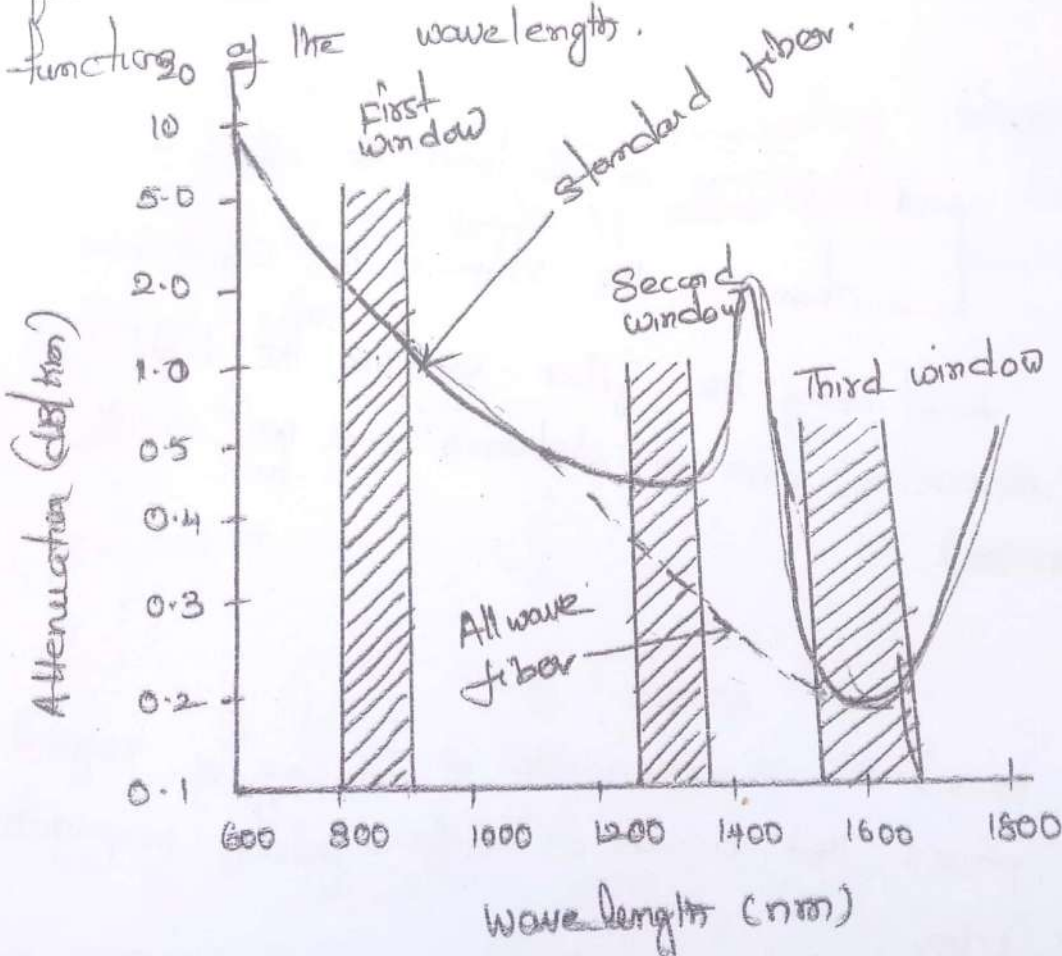 function of the wavelength.
20
10
5.0
2.0
1.0
0.5
0.4
0.3
0.2
0.1
Attenuation (dB/km)
First
window
standard fiber.
Second
window
Third window
All wave
fiber
600 800 1000 1200 1400 1600 1800
wavelength (nm)